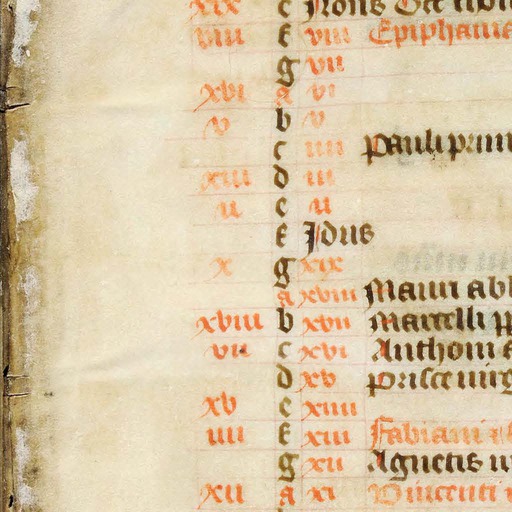 xix e Nonis
viii f viii Epiphania
g vii
xvi a vi
v b v
c iiii pauli prim
xiii d iii
ii e ii
f Idus
x g xix
a xviii Mauri abb
xviii b xvii Marcelli p
vii c xvi Anthoni a
d xv prisce uirg
xv e xiiii
iiii f xiii Fabiani
g xii Agnetis ui
xii a xi Vincenti